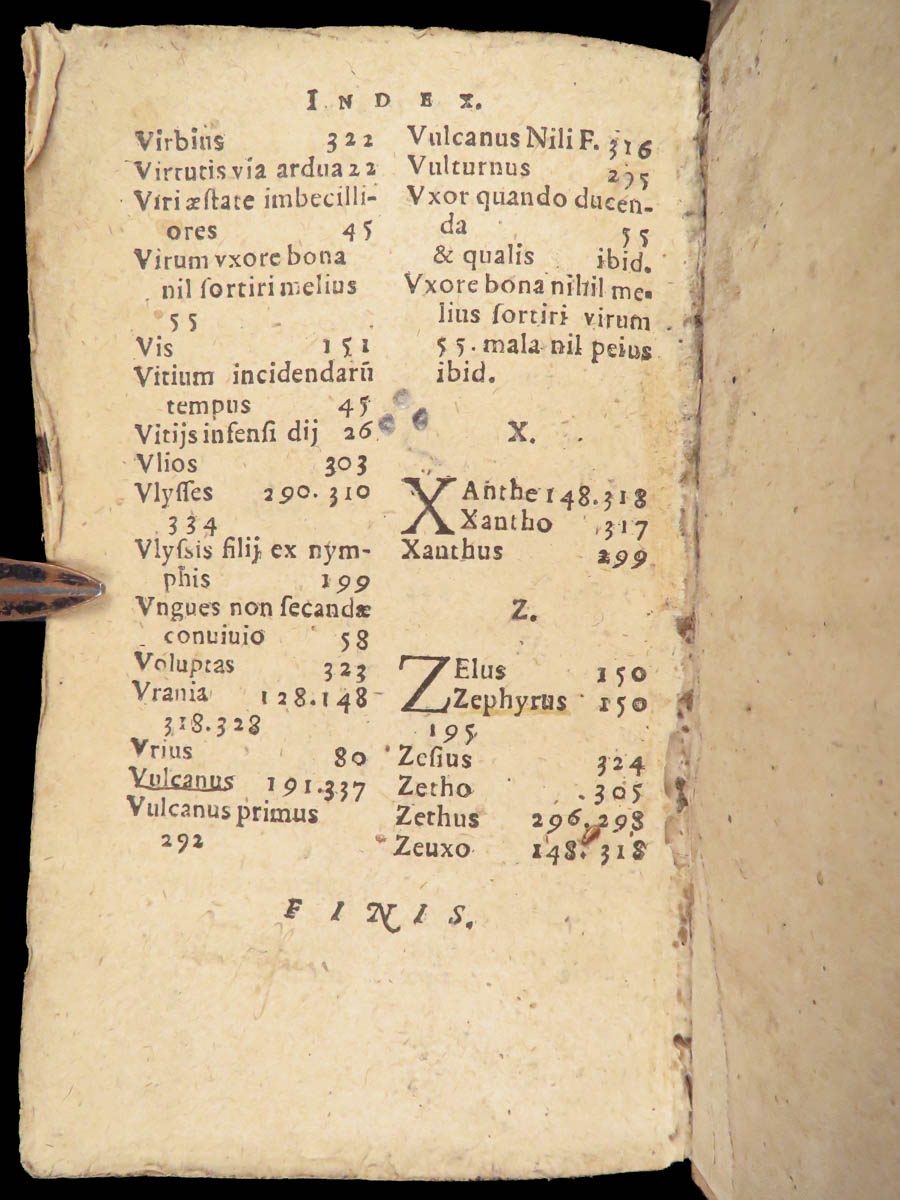 INDEX.
Virbius 322
Virtutis via ardua 22
Viri æstate imbecilli-
ores 45
Virum vxore bona
nil ſortiri melius
55
Vis 151
Vitium incidendarũ
tempus 45
Vitijs infenſi dij 26
Vlios 303
Vlyſſes 290. 310
334
Vlyſsis filij ex nym-
phis 199
Vngues non ſecandæ
conuiuio 58
Voluptas 323
Vrania 128.148
318.328
Vrius 80
Vulcanus 191.337
Vulcanus primus
292
Vulcanus Nili F. 316
Vulturnus 295
Vxor quando ducen-
da 55
& qualis ibid.
Vxore bona nihil me-
lius ſortiri virum
55. mala nil peius
ibid.
X.
XAnthe 148.318
Xantho 317
Xanthus 299
Z.
ZElus 150
Zephyrus 150
195
Zeſius 324
Zetho 305
Zethus 296.298
Zeuxo 148. 318
FINIS.